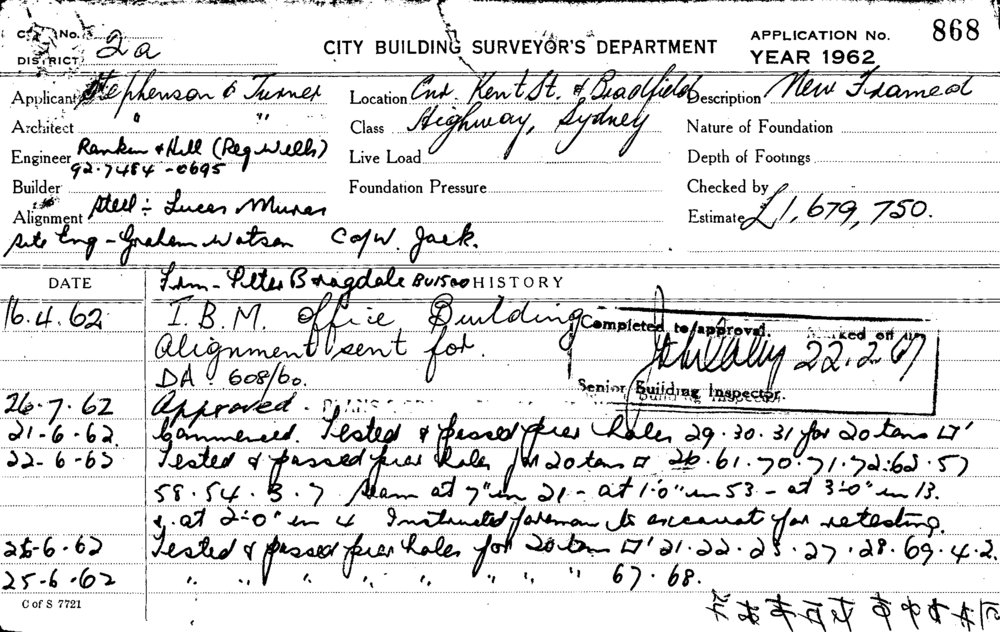 C No. 2a
DISTRICT
CITY BUILDING SURVEYOR'S DEPARTMENT
APPLICATION No. 868
YEAR 1962
Applicant Stephenson & Turner
Location Cnr. Kent St. & Bradfield
Description New Framed
Architect " "
Class Highway, Sydney
Nature of Foundation
Engineer Rankin & Hill (Reg Wells)
92.7484 - 0695
Live Load
Depth of Footings
Builder
Foundation Pressure
Checked by
Alignment Steel ÷ Lucas Muras
Estimate £1,679,750.
Site Eng - Graham Watson C of W. Jack.
DATE
Frm - Peter Bragdale BU1500 HISTORY
16.4.62 I.B.M. Office Building
Alignment sent for.
DA. 608/60.
Completed to approval. Marked off
22.2.67
Senior Building Inspector.
26.7.62 Approved.
21-6-62 Commenced. Tested & passed pier holes 29.30.31 for 20 tons □'
22-6-62 Tested & passed pier holes for 20 tons □ 26.61.70.71.72.62.57
58.54.3.7 Seam at 7" in 21 - at 1'0" in 53 - at 3'0" in 13.
& at 2'0" in 4 Instructed foreman to excavat for retesting.
25-6-62 Tested & passed pier holes for 20 tons □' 21.22.23.27.28.69.4.2.
25-6-62 " " " " " " " " 67.68.
C of S 7721